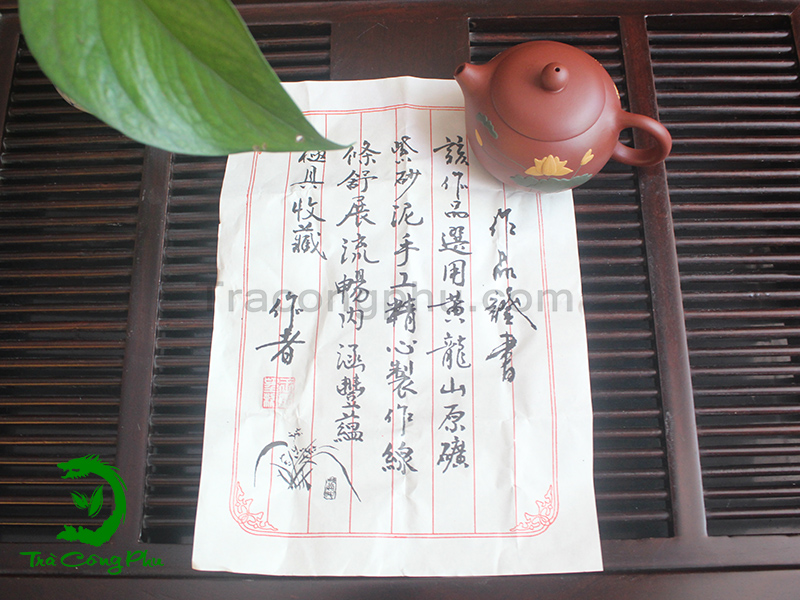 作品證書
該作品選用黃龍山原礦
紫砂泥手工精心製作線
條舒展流暢內涵豐蘊
極具收藏
作者
Tracongphu.com
Trà Công Phu